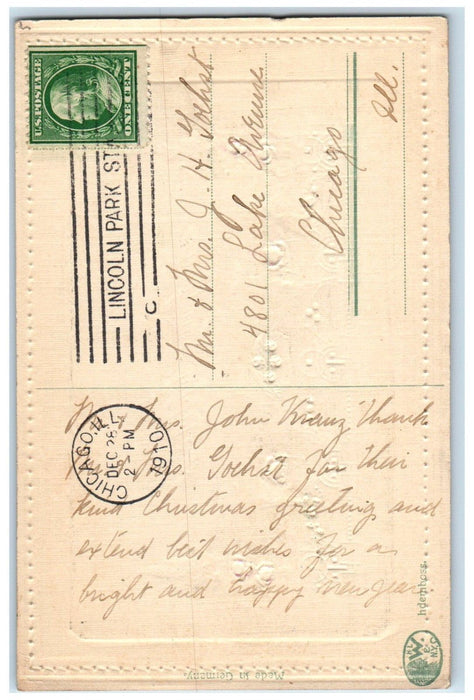 U.S. POSTAGE
ONE CENT
LINCOLN PARK STA
C
CHICAGO, ILL.
DEC 28
2 - PM
1910
Mr & Mrs. J. H. Goehst
4801 Lake Avenue
Chicago
Ill.
Mr & Mrs. John Kranz thank
Mr & Mrs. Goehst for their
kind Christmas greeting and
extend best wishes for a
bright and happy new year.
Made in Germany.